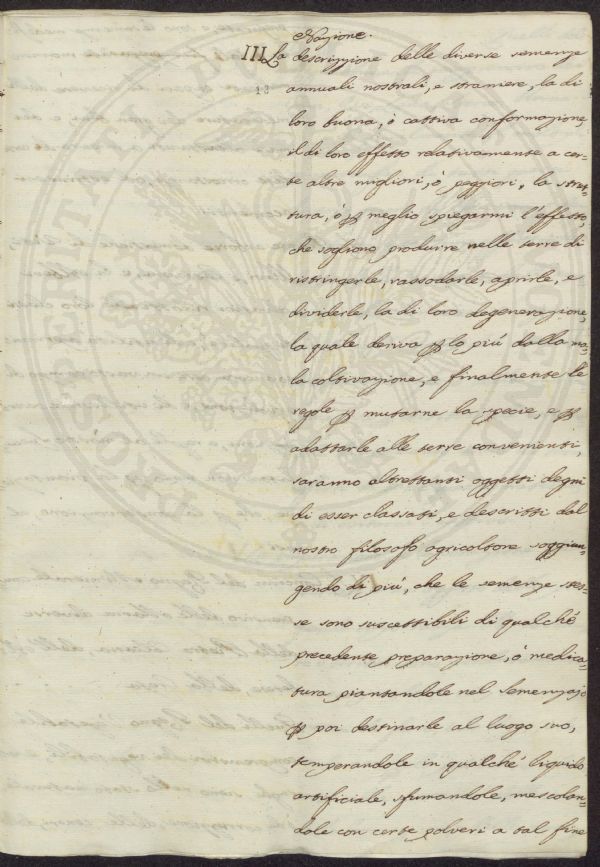 Nazione.
III. La descrizzione delle diverse semenze
13
annuali nostrali, e straniere, la di
loro buona, ò cattiva conformazione,
il di loro effetto relativamente a cer-
te altre migliori, ò peggiori, la stret-
tura, ò ꝑ meglio spiegarmi l'effetto,
che sogliono produrre nelle terre di
ristringerle, rassodarle, aprirle, e
dividerle, la di loro degenerazione,
la quale deriva ꝑ lo piú dalla ma-
la coltivazione, e finalmente le
regole ꝑ mutarne la specie, e ꝑ
adattarle alle terre convenienti,
saranno altrettanti oggetti degni
di esser classati, e descritti dal
nostro filosofo agricoltore soggiun-
gendo di piú, che le semenze stes-
se sono suscettibili di qualché
precedente preparazione, ò medica-
tura piantandole nel Semenzajo
ꝑ poi destinarle al luogo suo,
temperandole in qualché liquido
artificiale, sfumandole, mescolan-
dole con certe polveri a tal fine